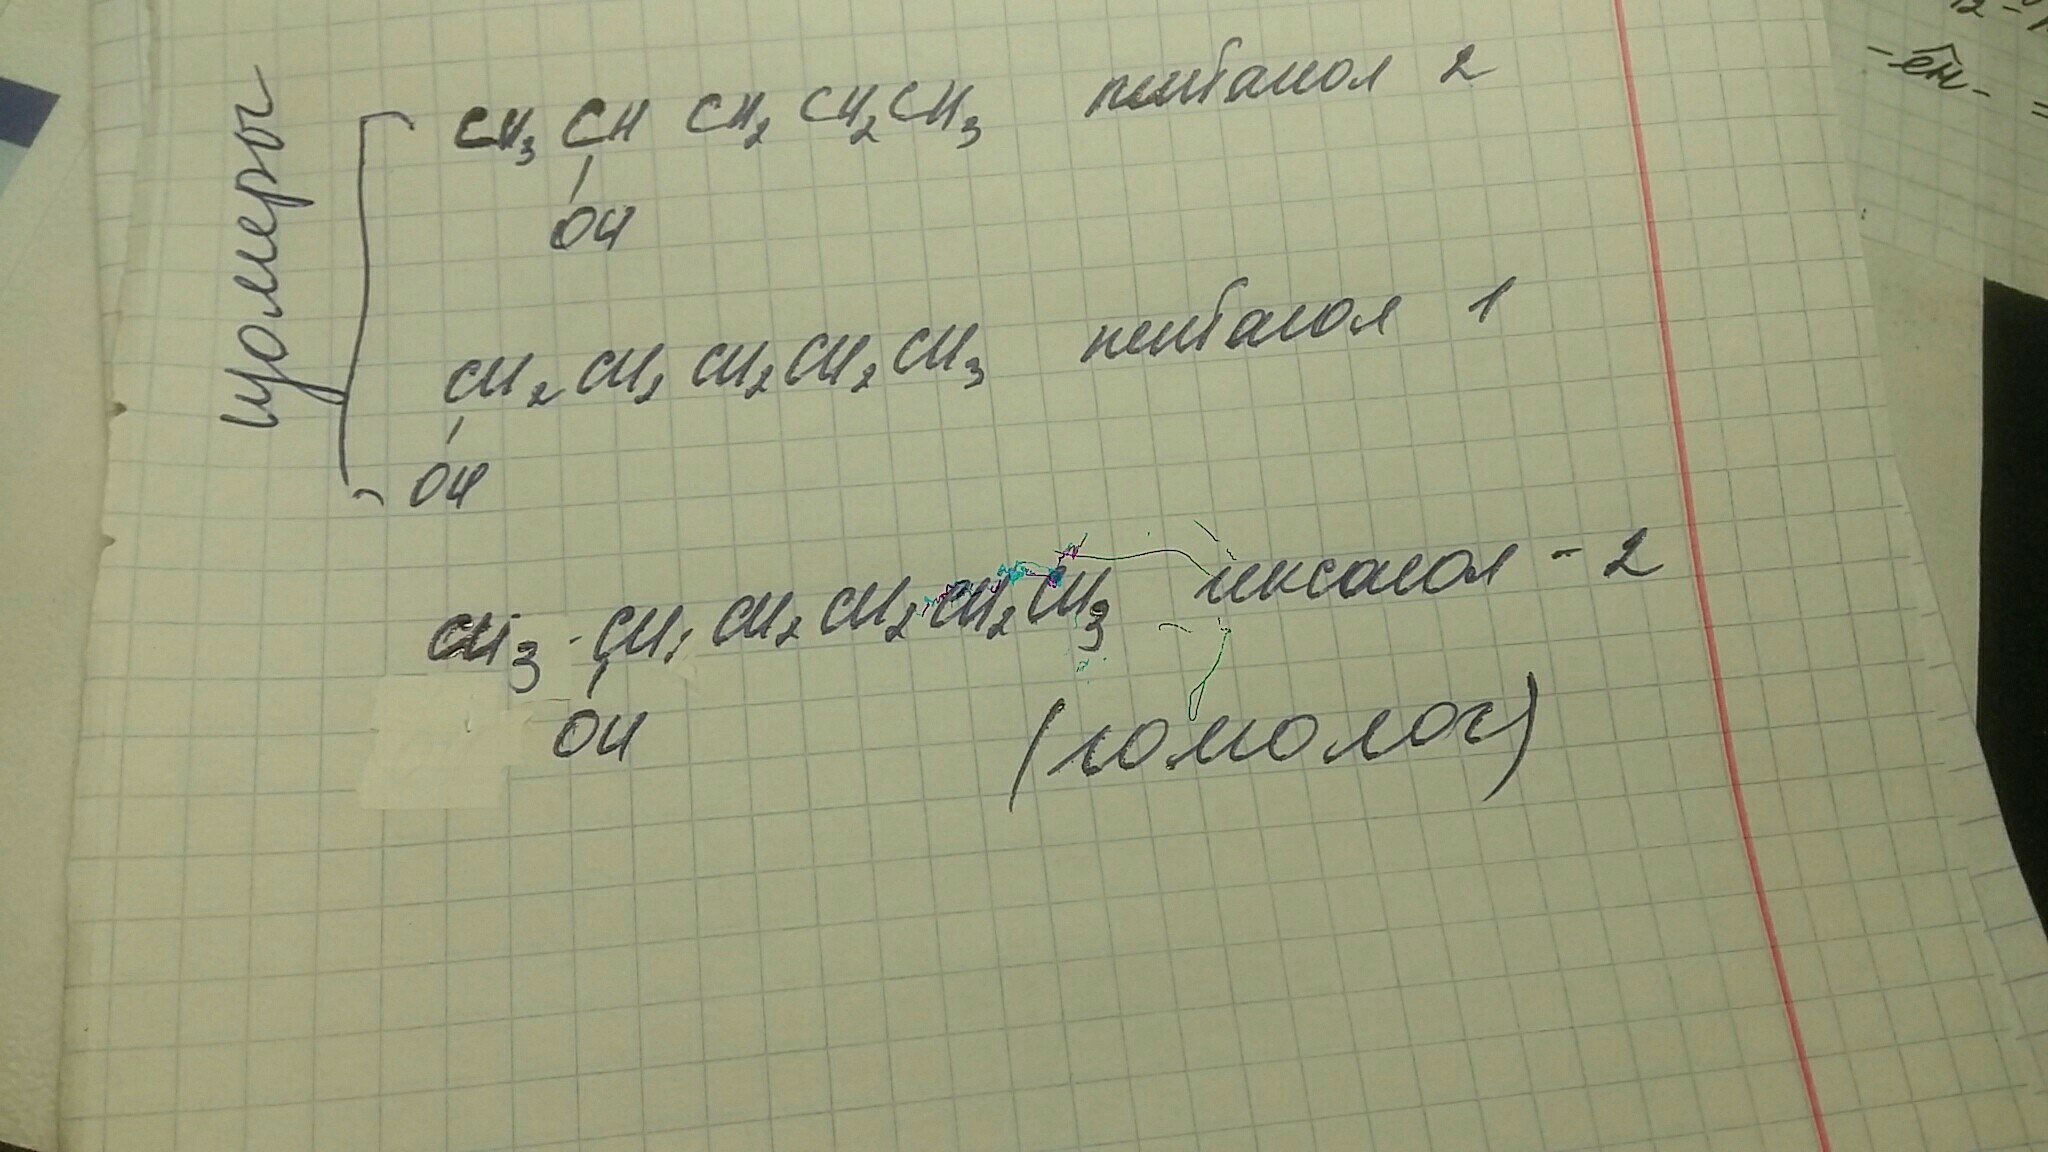 изомеры
CH3 CH CH2 CH2 CH3 пентанол 2
OH
CH2 CH2 CH2 CH2 CH3 пентанол 1
OH
CH3 - CH CH2 CH2 CH2 CH3 гексанол - 2
OH
(гомолог)
-ен- =